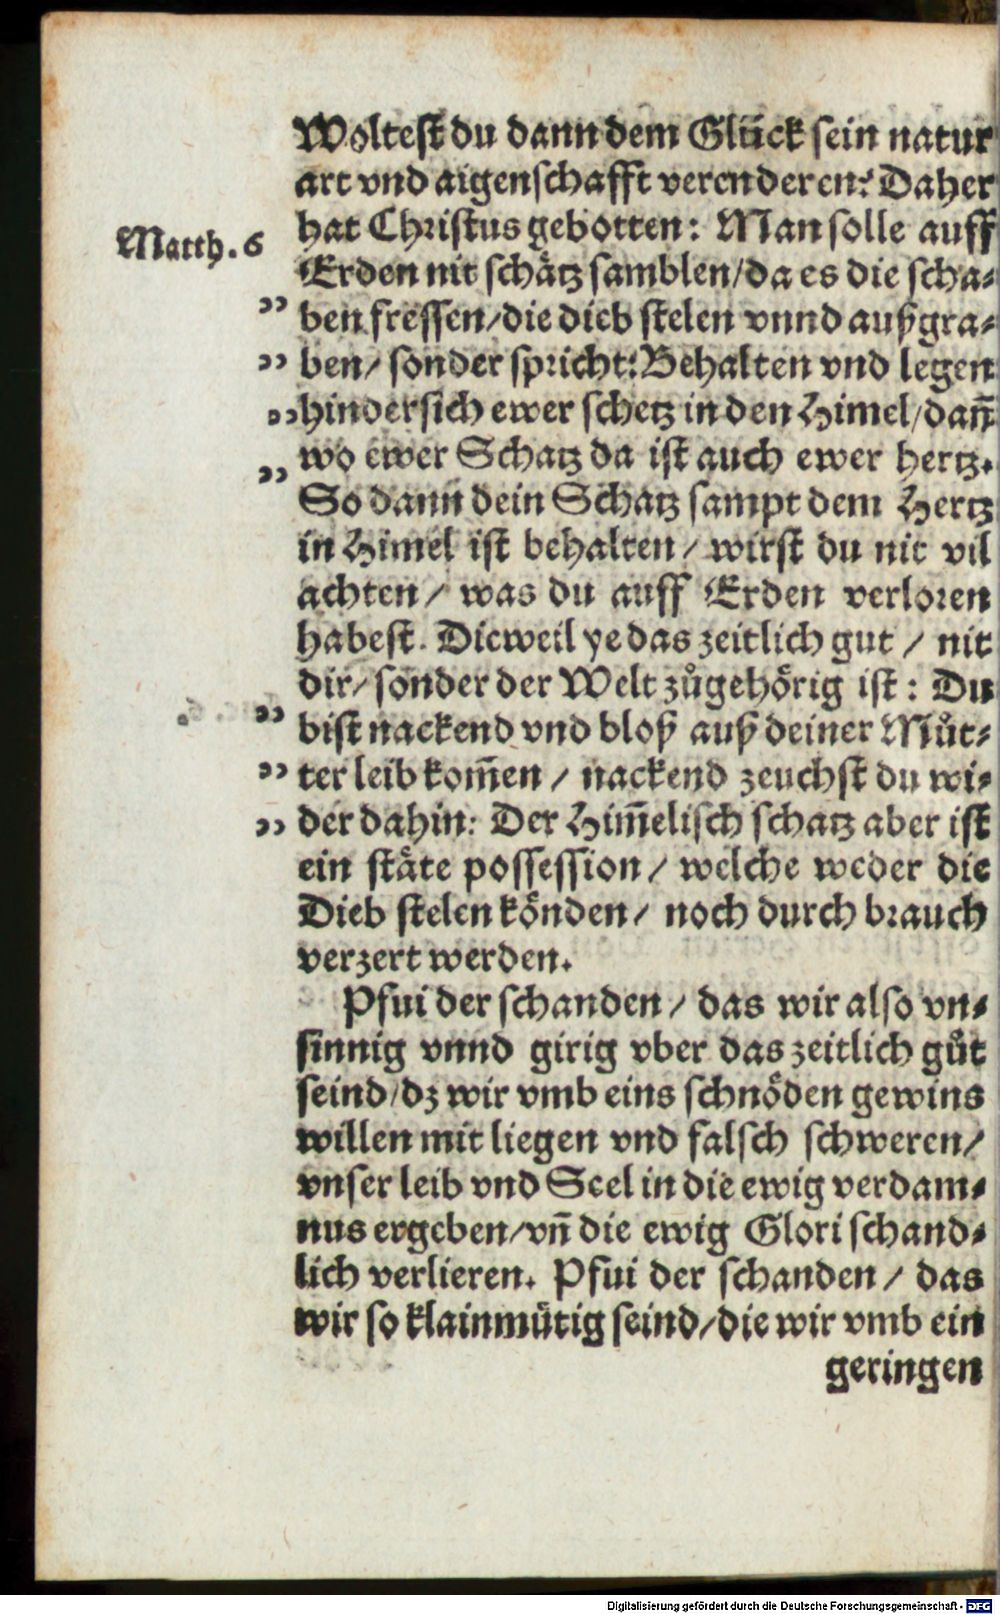 Woltest du dann dem Glück sein natur
art vnd aigenschafft verenderen? Daher
hat Christus gebotten: Man solle auff
Matth. 6
Erden nit schätz samblen/ da es die scha⸗
ben fressen/ die dieb stelen vnnd außgra⸗
ben/ sonder spricht: Behalten vnd legen
hindersich ewer schetz in den Himel/ dañ
wo ewer Schatz da ist auch ewer hertz.
So dann dein Schatz sampt dem Hertz
in Himel ist behalten/ wirst du nit vil
achten/ was du auff Erden verloren
habest. Dieweil ye das zeitlich gut/ nit
dir/ sonder der Welt zůgehörig ist: Du
bist nackend vnd bloß auß deiner Můt⸗
ter leib kom̃en/ nackend zeuchst du wi⸗
der dahin: Der Him̃elisch schatz aber ist
ein stäte possession/ welche weder die
Dieb stelen könden/ noch durch brauch
verzert werden.
Pfui der schanden/ das wir also vn⸗
sinnig vnnd girig vber das zeitlich gůt
seind/ dz wir vmb eins schnöden gewins
willen mit liegen vnd falsch schweren/
vnser leib vnd Seel in die ewig verdam⸗
nus ergeben/ vñ die ewig Glori schand⸗
lich verlieren. Pfui der schanden/ das
wir so klainmütig seind/ die wir vmb ein
geringen
Digitalisierung gefördert durch die Deutsche Forschungsgemeinschaft - DFG